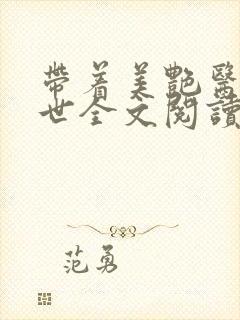 帶着美艷醫
世全文閱讀
范勇